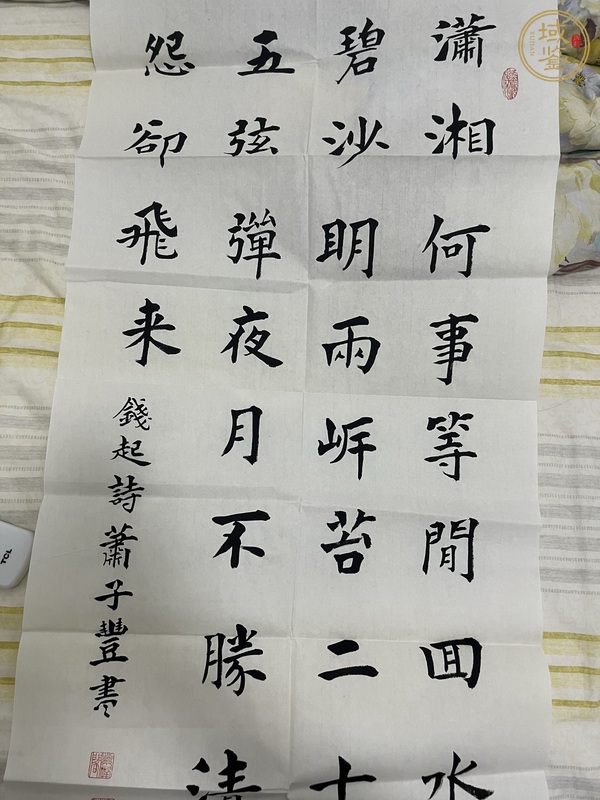 瀟湘何事等閒囬水
碧沙明兩岸苔二十
五弦彈夜月不勝清
怨卻飛来
錢起詩蕭子豐書
域鉴